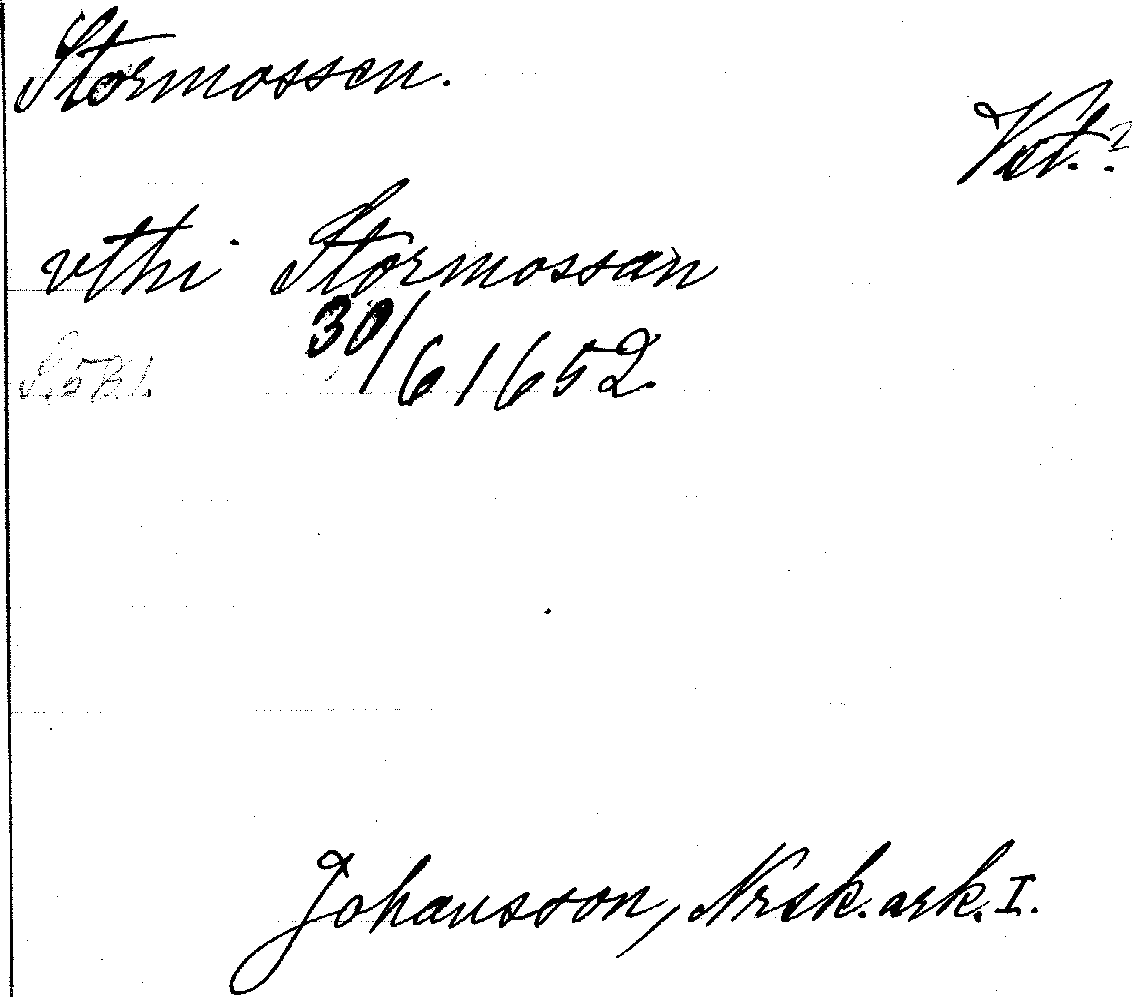 Stormossen.
Vst.?
vthi Stormossan
30/6 1652.
Johansson, Nrsk. ark. I.